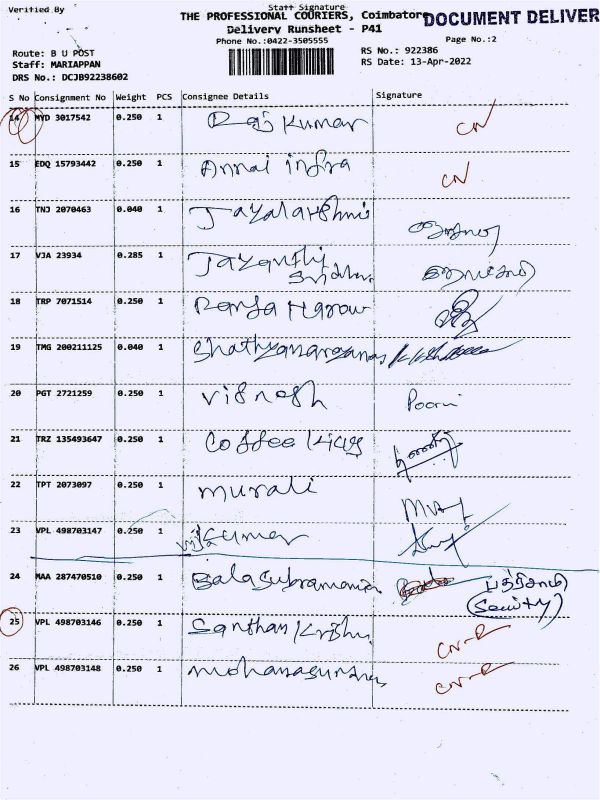 Verified By
Staff Signature
THE PROFESSIONAL COURIERS, Coimbatore
DOCUMENT DELIVER
Delivery Runsheet - P41
Phone No.:0422-3505555
Page No.:2
Route: B U POST
RS No.: 922386
Staff: MARIAPPAN
RS Date: 13-Apr-2022
DRS No.: DCJB92238602
S No Consignment No Weight PCS Consignee Details Signature
14 MYD 3017542 0.250 1 Raj Kumar CN
15 EDQ 15793442 0.250 1 Annai infra CN
16 TNJ 2070463 0.040 1 Jayalakshmi
17 VJA 23934 0.285 1 Jayanthi
Sridhar
18 TRP 7071514 0.250 1
19 TMG 200211125 0.040 1 Shathyanarayanas
20 PGT 2721259 0.250 1 Vignesh Poorni
21 TRZ 135493647 0.250 1 Coffee King
22 TPT 2073097 0.250 1 murali
23 VPL 498703147 0.250 1 Kumar
24 MAA 287470510 0.250 1 Balasubramania
25 VPL 498703146 0.250 1 CN-R
26 VPL 498703148 0.250 1 CN-R